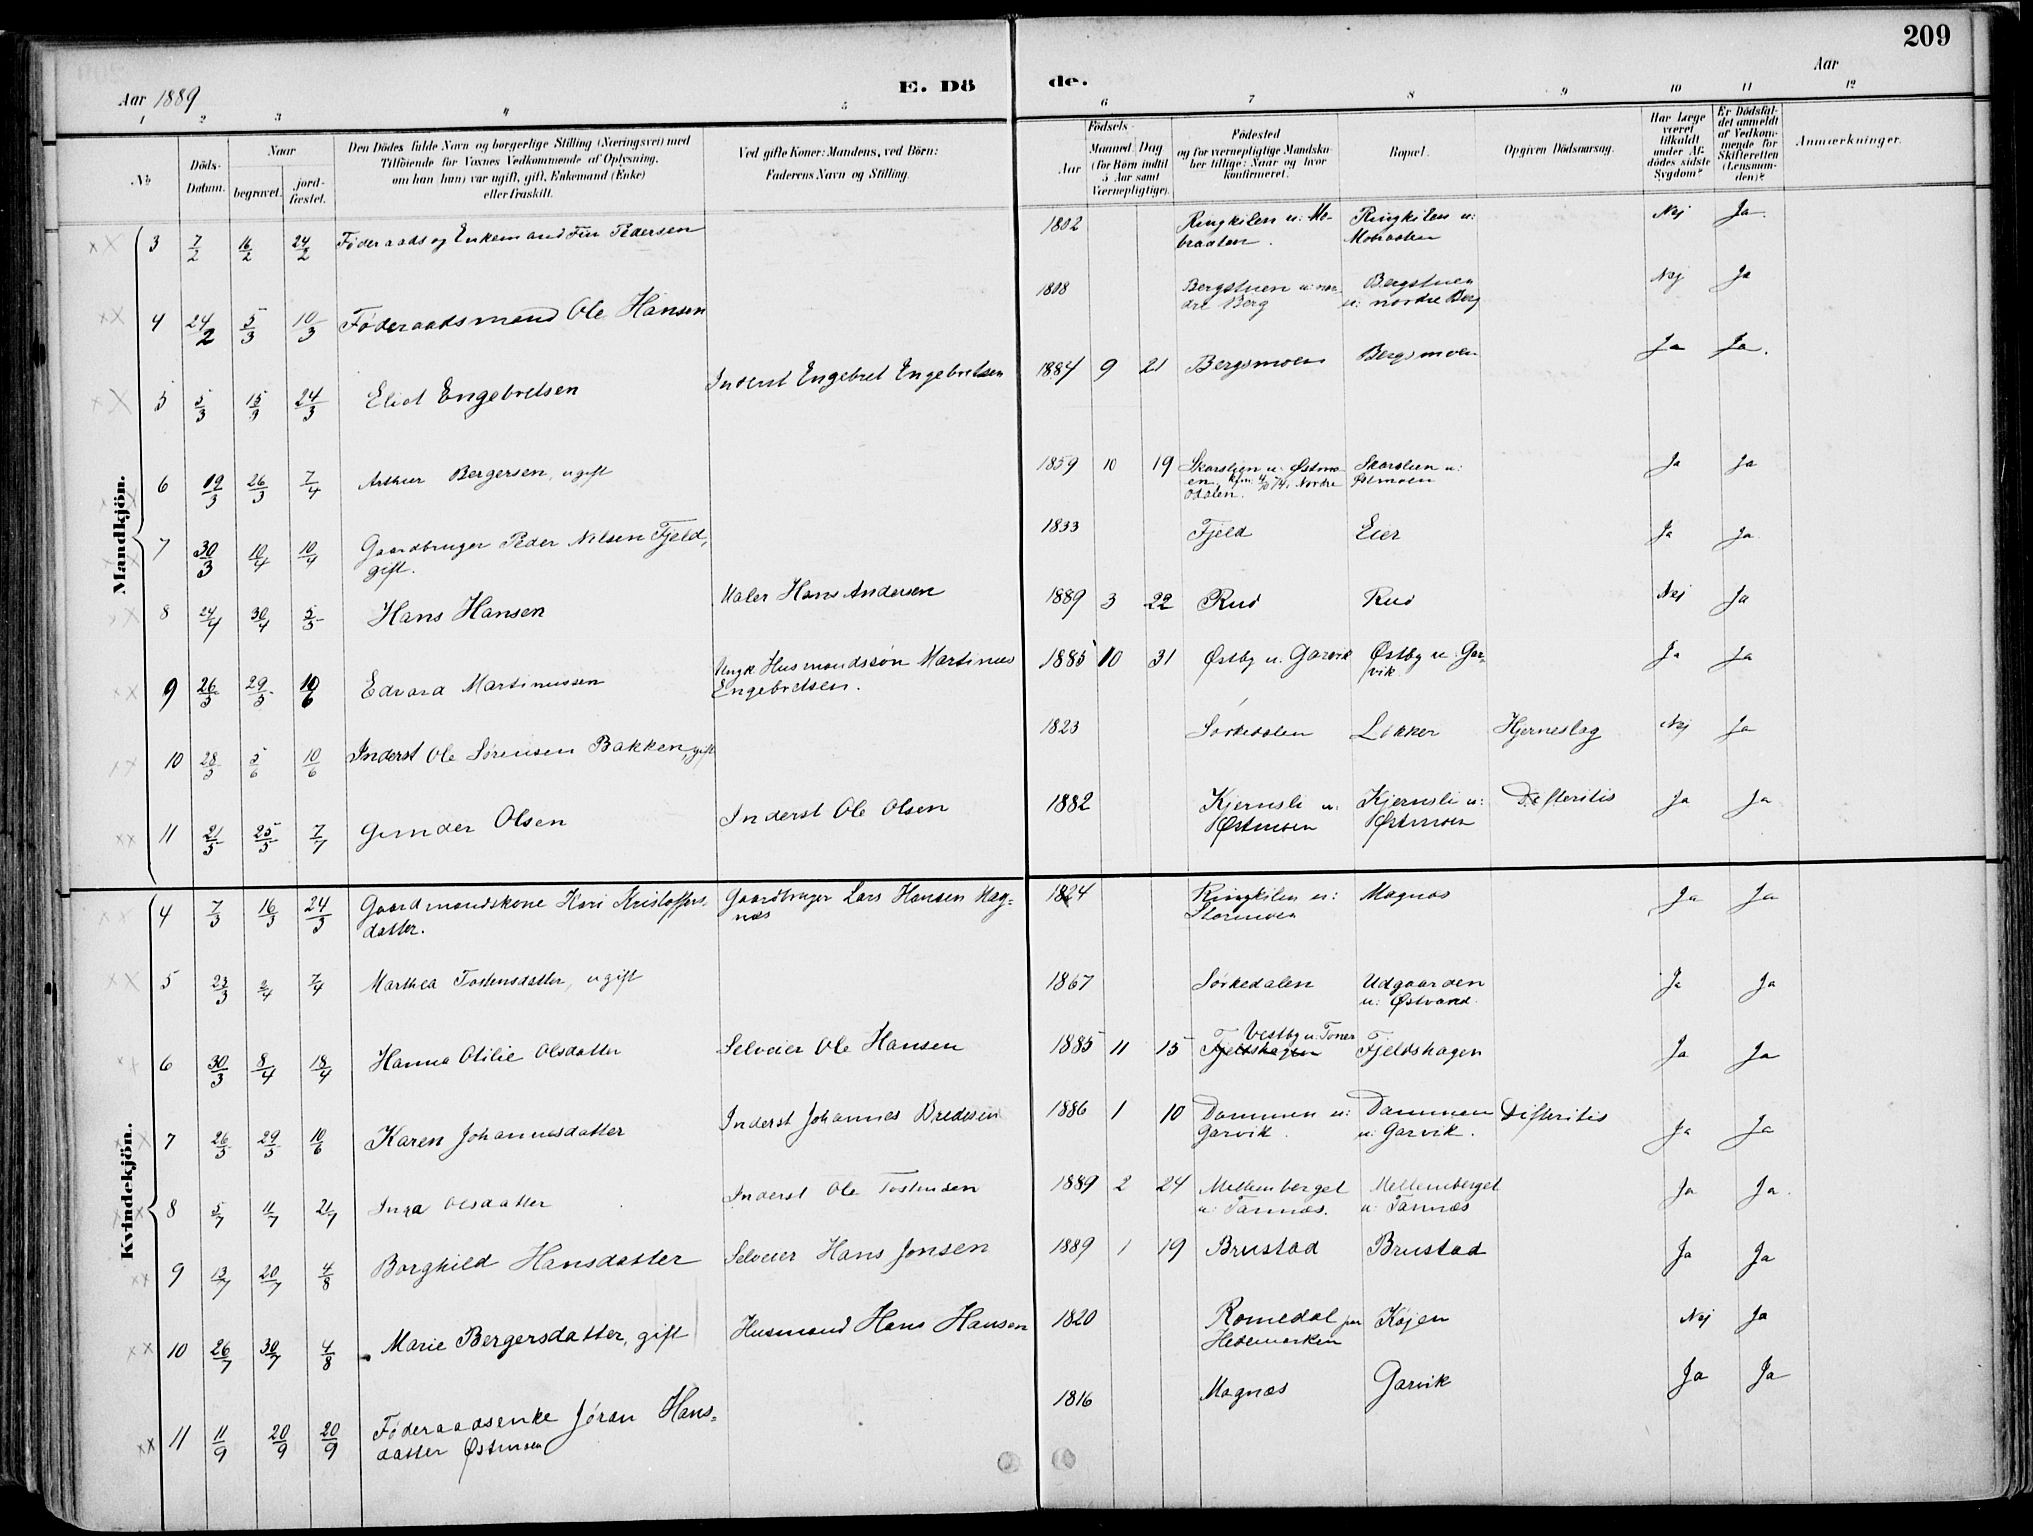 209
Aar 1889
E. Dö
de.
Aar
1 2 3 4 5 6 7 8 9 10 11 12
№
Döds-Datum.
Naar
begravet.
jord-fæstet.
Den Dödes fulde Navn og borgerlige Stilling (Næringsvei) med
Tilföiende for Voxnes Vedkommende af Oplysning,
om han (hun) var ugift, gift, Enkemand (Enke)
eller fraskilt.
Ved gifte Koner: Mandens, ved Börn:
Faderens Navn og Stilling.
Födsels-
Aar
Maaned Dag
(for Börn indtil
5 Aar samt
Værnepligtige).
Födested
og for værnepligtige Mandska-
ber tillige: Naar og hvor
konfirmeret.
Bopæl.
Opgiven Dödsaarsag.
Har Læge
været
tilkaldt
under Af-
dödes sidste
Sygdom?
Er Dödsfal-
det anmeldt
af Vedkom-
mende for
Skifteretten
(Lensman-
den)?
Anmærkninger.
Mandkjön.
3 7/2 16/2 24/2 Føderaads og Enkemand Finn Pedersen 1802 Ringkilen u: Mo- Ringkilen u: Nej Ja.
braaten. Mobraaten
4 24/2 5/3 10/3 Føderaadsmand Ole Hansen 1808 Bergstuen u: nor- Bergstuen Nej Ja
dre Berg u: nordre Berg
5 5/3 15/3 24/3 Eliot Engebretsen Inderst Engebret Engebretsen 1884 9 21 Bergsmoen Bergsmoen Ja Ja.
6 19/3 26/3 7/4 Arthur Bergersen, ugift 1859 10 19 Skarslien u: Østmo- Skarslien u: Ja Ja
en. Kfm. 4/10 74. Nordre Østmoen
Odalen.
7 30/3 10/4 10/4 Gaardbruger Peder Nilsen Fjeld, 1833 Fjeld Eier Ja Ja
gift.
8 24/4 30/4 5/5 Hans Hansen Maler Hans Andersen 1889 3 22 Rud Rud Nej Ja
9 26/5 29/5 10/6 Edvard Martinussen Ungk Husmandssøn Martinus 1885 10 31 Østby u. Garvik Østby u. Gar- Ja Ja
Engebretsen. vik
10 28/5 5/6 10/6 Inderst Ole Sørensen Bakken, gift 1823 Sørkedalen Løkker Hjerneslag Nej Ja
11 21/5 25/5 7/7 Gunder Olsen Inderst Ole Olsen 1882 Kjernsli u: Kjernsli u: Difteritis Ja Ja
Østmoen Østmoen
Kvindekjön.
4 7/3 16/3 24/3 Gaardmandskone Kari Kristoffers- Gaardbruger Lars Hansen Mag- 1824 Ringkilen u: Magnæs Ja Ja
datter. næs Stormoen
5 23/3 2/4 7/4 Marthea Tostensdatter, ugift 1867 Sørkedalen Udgaarden Ja Ja
u: Østvand.
6 30/3 8/4 18/4 Hanna Otilie Olsdatter Selveier Ole Hansen 1885 11 15 Vestby u. Toner Fjeldshagen Ja Ja
Fjeldshagen
7 26/5 29/5 10/6 Karen Johannesdatter Inderst Johannes Bredesen 1886 1 10 Dammen u: Dammen Difteritis Ja Ja
Garvik. u: Garvik.
8 5/7 11/7 21/7 Inga Olsdatter Inderst Ole Tostensen 1889 2 24 Mellemberget Mellemberget Ja Ja.
u: Tannæs. u: Tannæs
9 13/7 20/7 4/8 Borghild Hansdatter Selveier Hans Jonsen 1889 1 19 Brustad Brustad Ja Ja
10 26/7 30/7 4/8 Marie Bergersdatter, gift Husmand Hans Hansen 1820 Romedal paa Køjen Nej Ja
Hedemarken
11 11/9 20/9 20/9 Føderaadsenke Jøran Hans- 1816 Magnæs Garvik Ja Ja
datter Østmoen